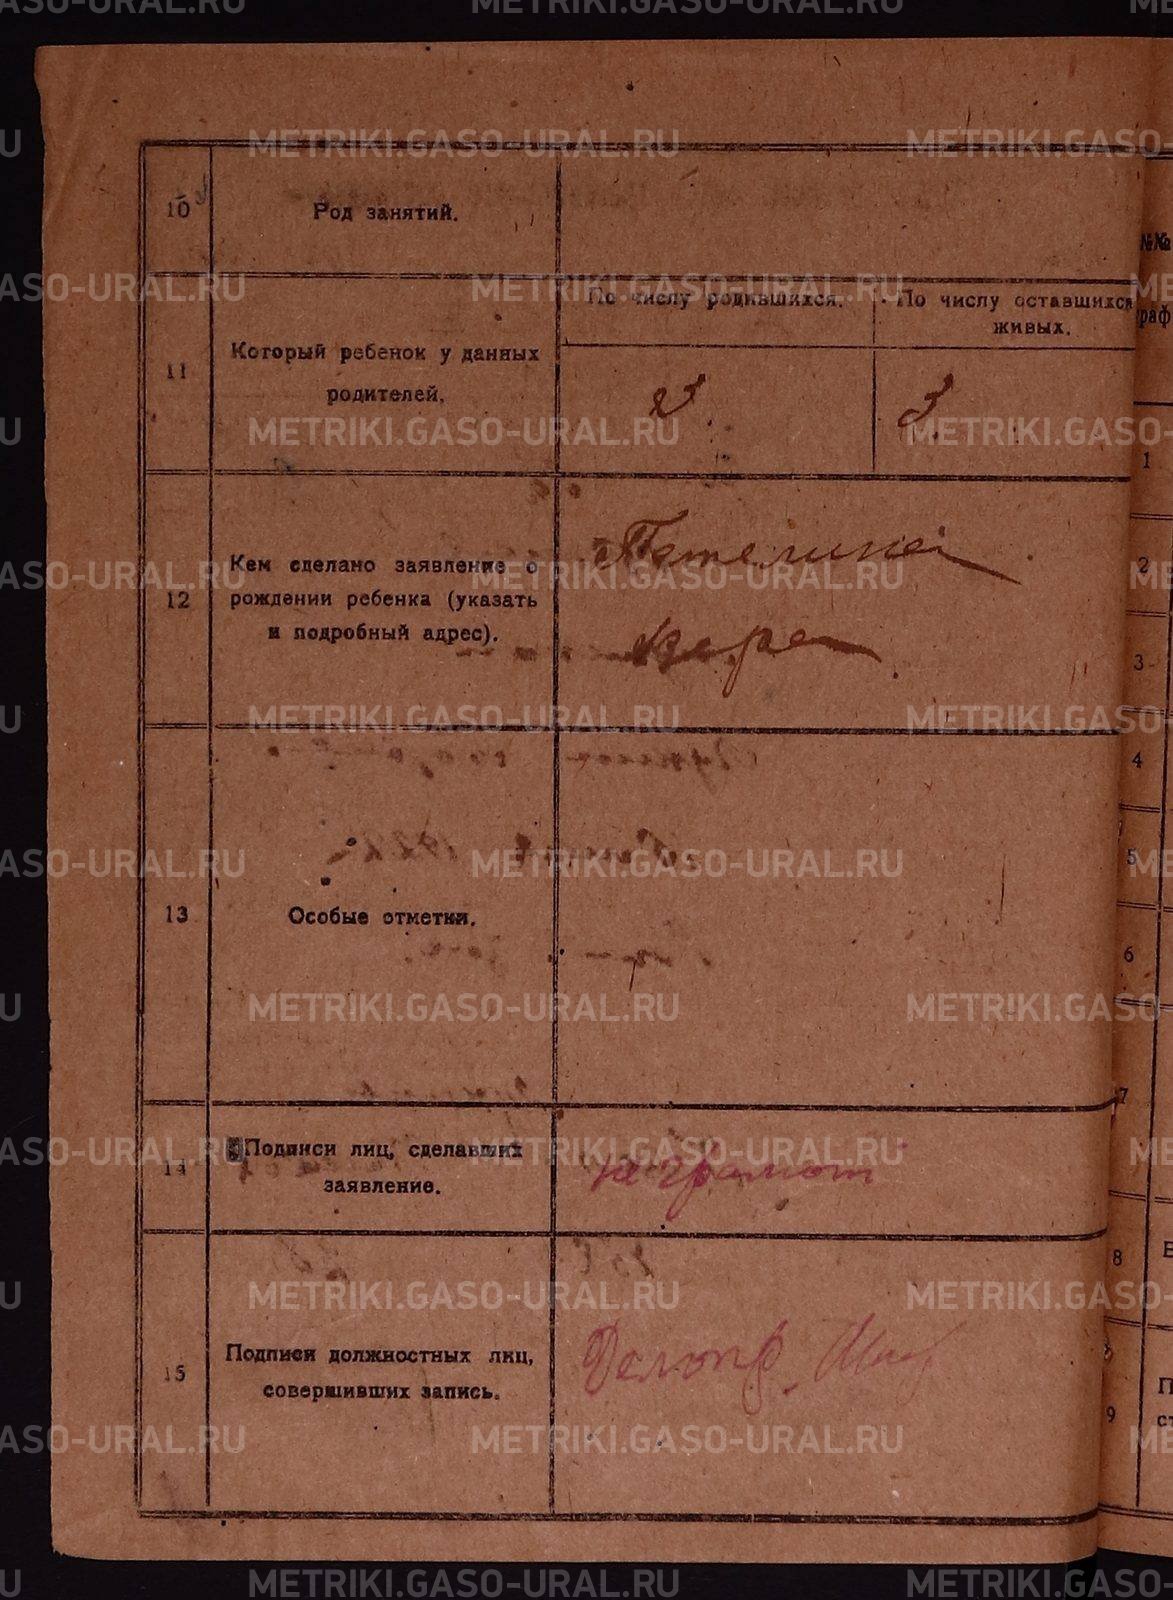 METRIKI.GASO-URAL.RU
10
Род занятий.
11
Который ребенок у данных
родителей.
По числу родившихся.
По числу оставшихся
живых.
3
12
Кем сделано заявление о
рождении ребенка (указать
и подробный адрес).
Вера
13
Особые отметки.
14
Подписи лиц, сделавших
заявление.
не грамот
15
Подписи должностных лиц,
совершивших запись.
Делопр.
№№
граф
1
2
3
4
5
6
7
8
9